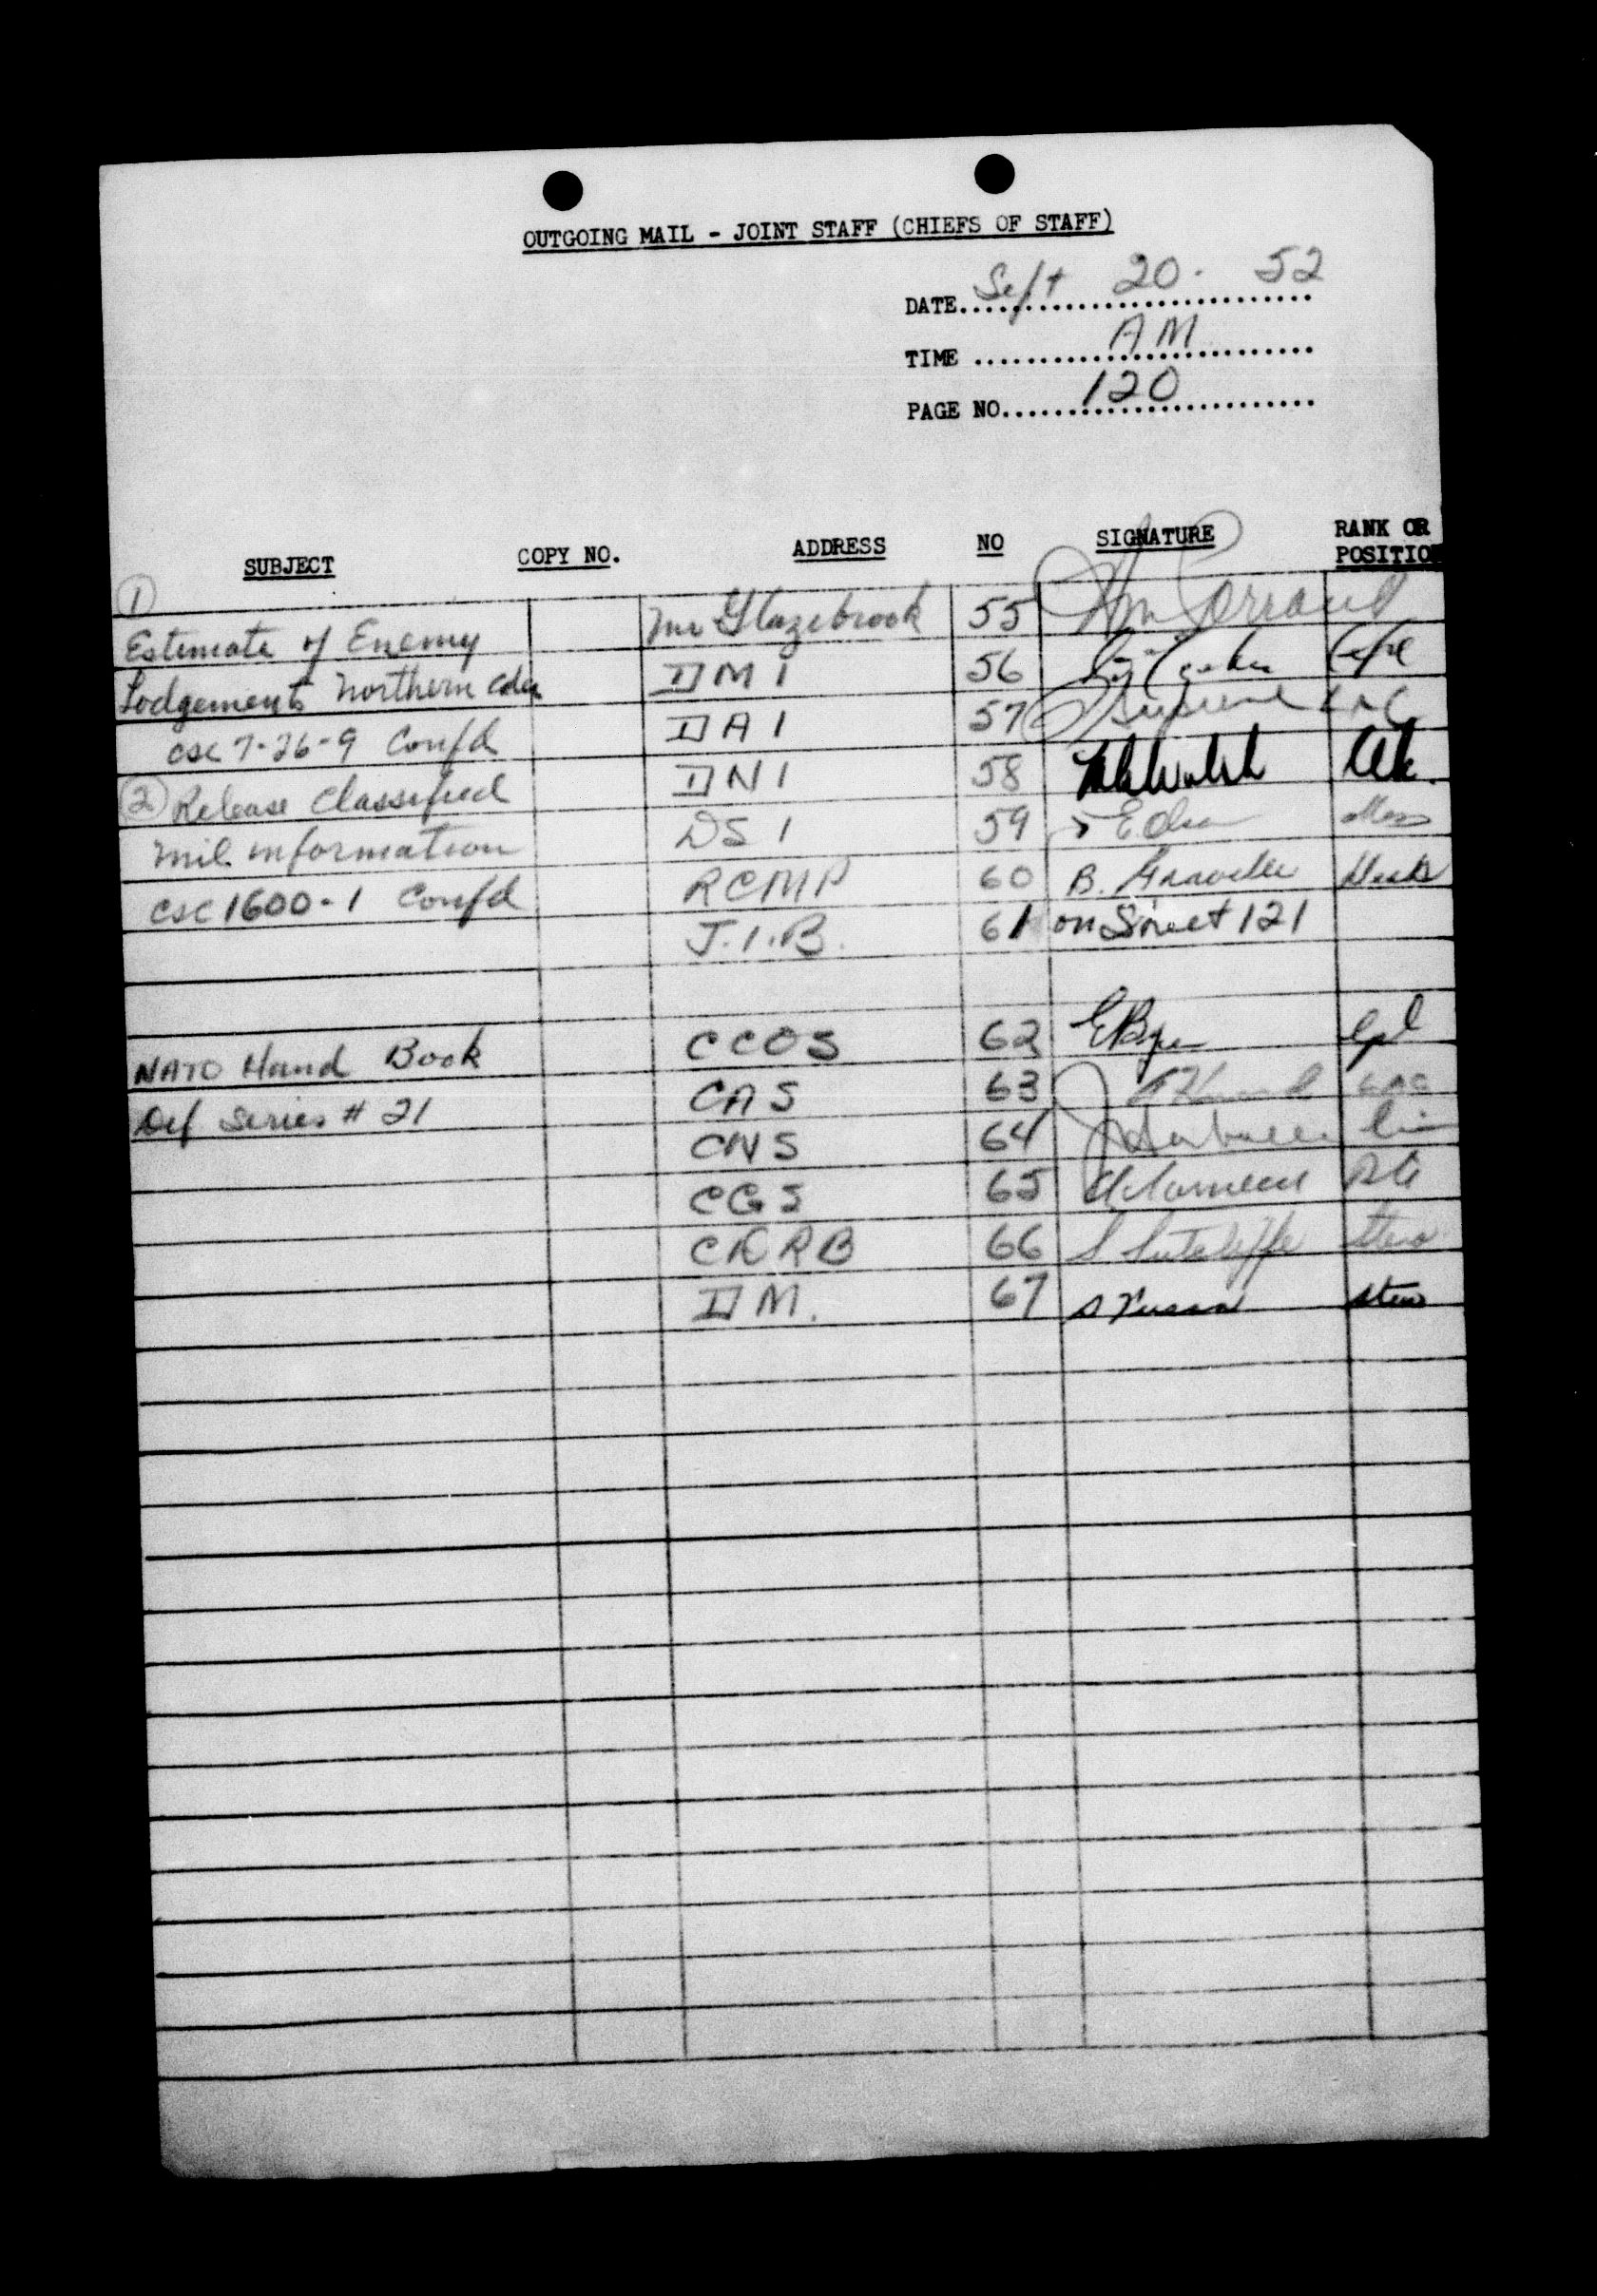 OUTGOING MAIL - JOINT STAFF (CHIEFS OF STAFF)
DATE Sept 20. 52
TIME AM
PAGE NO. 120
SUBJECT COPY NO. ADDRESS NO SIGNATURE RANK OR POSITION
①
Estimate of Enemy Mr Glazebrook 55
Lodgements Northern Cda DMI 56
CSC 7-26-9 Confd DAI 57 LAC
② Release Classified DNI 58 Walsh
Mil information DSI 59 Mess
CSC 1600-1 Confd RCMP 60 B.
J.I.B. 61 on Sheet 121
NATO Hand Book CCOS 62 Cpl
Def Series # 21 CAS 63 LAC
CNS 64
CGS 65 Pte
CDRB 66 S Sutcliffe Steno
DM. 67 Steno